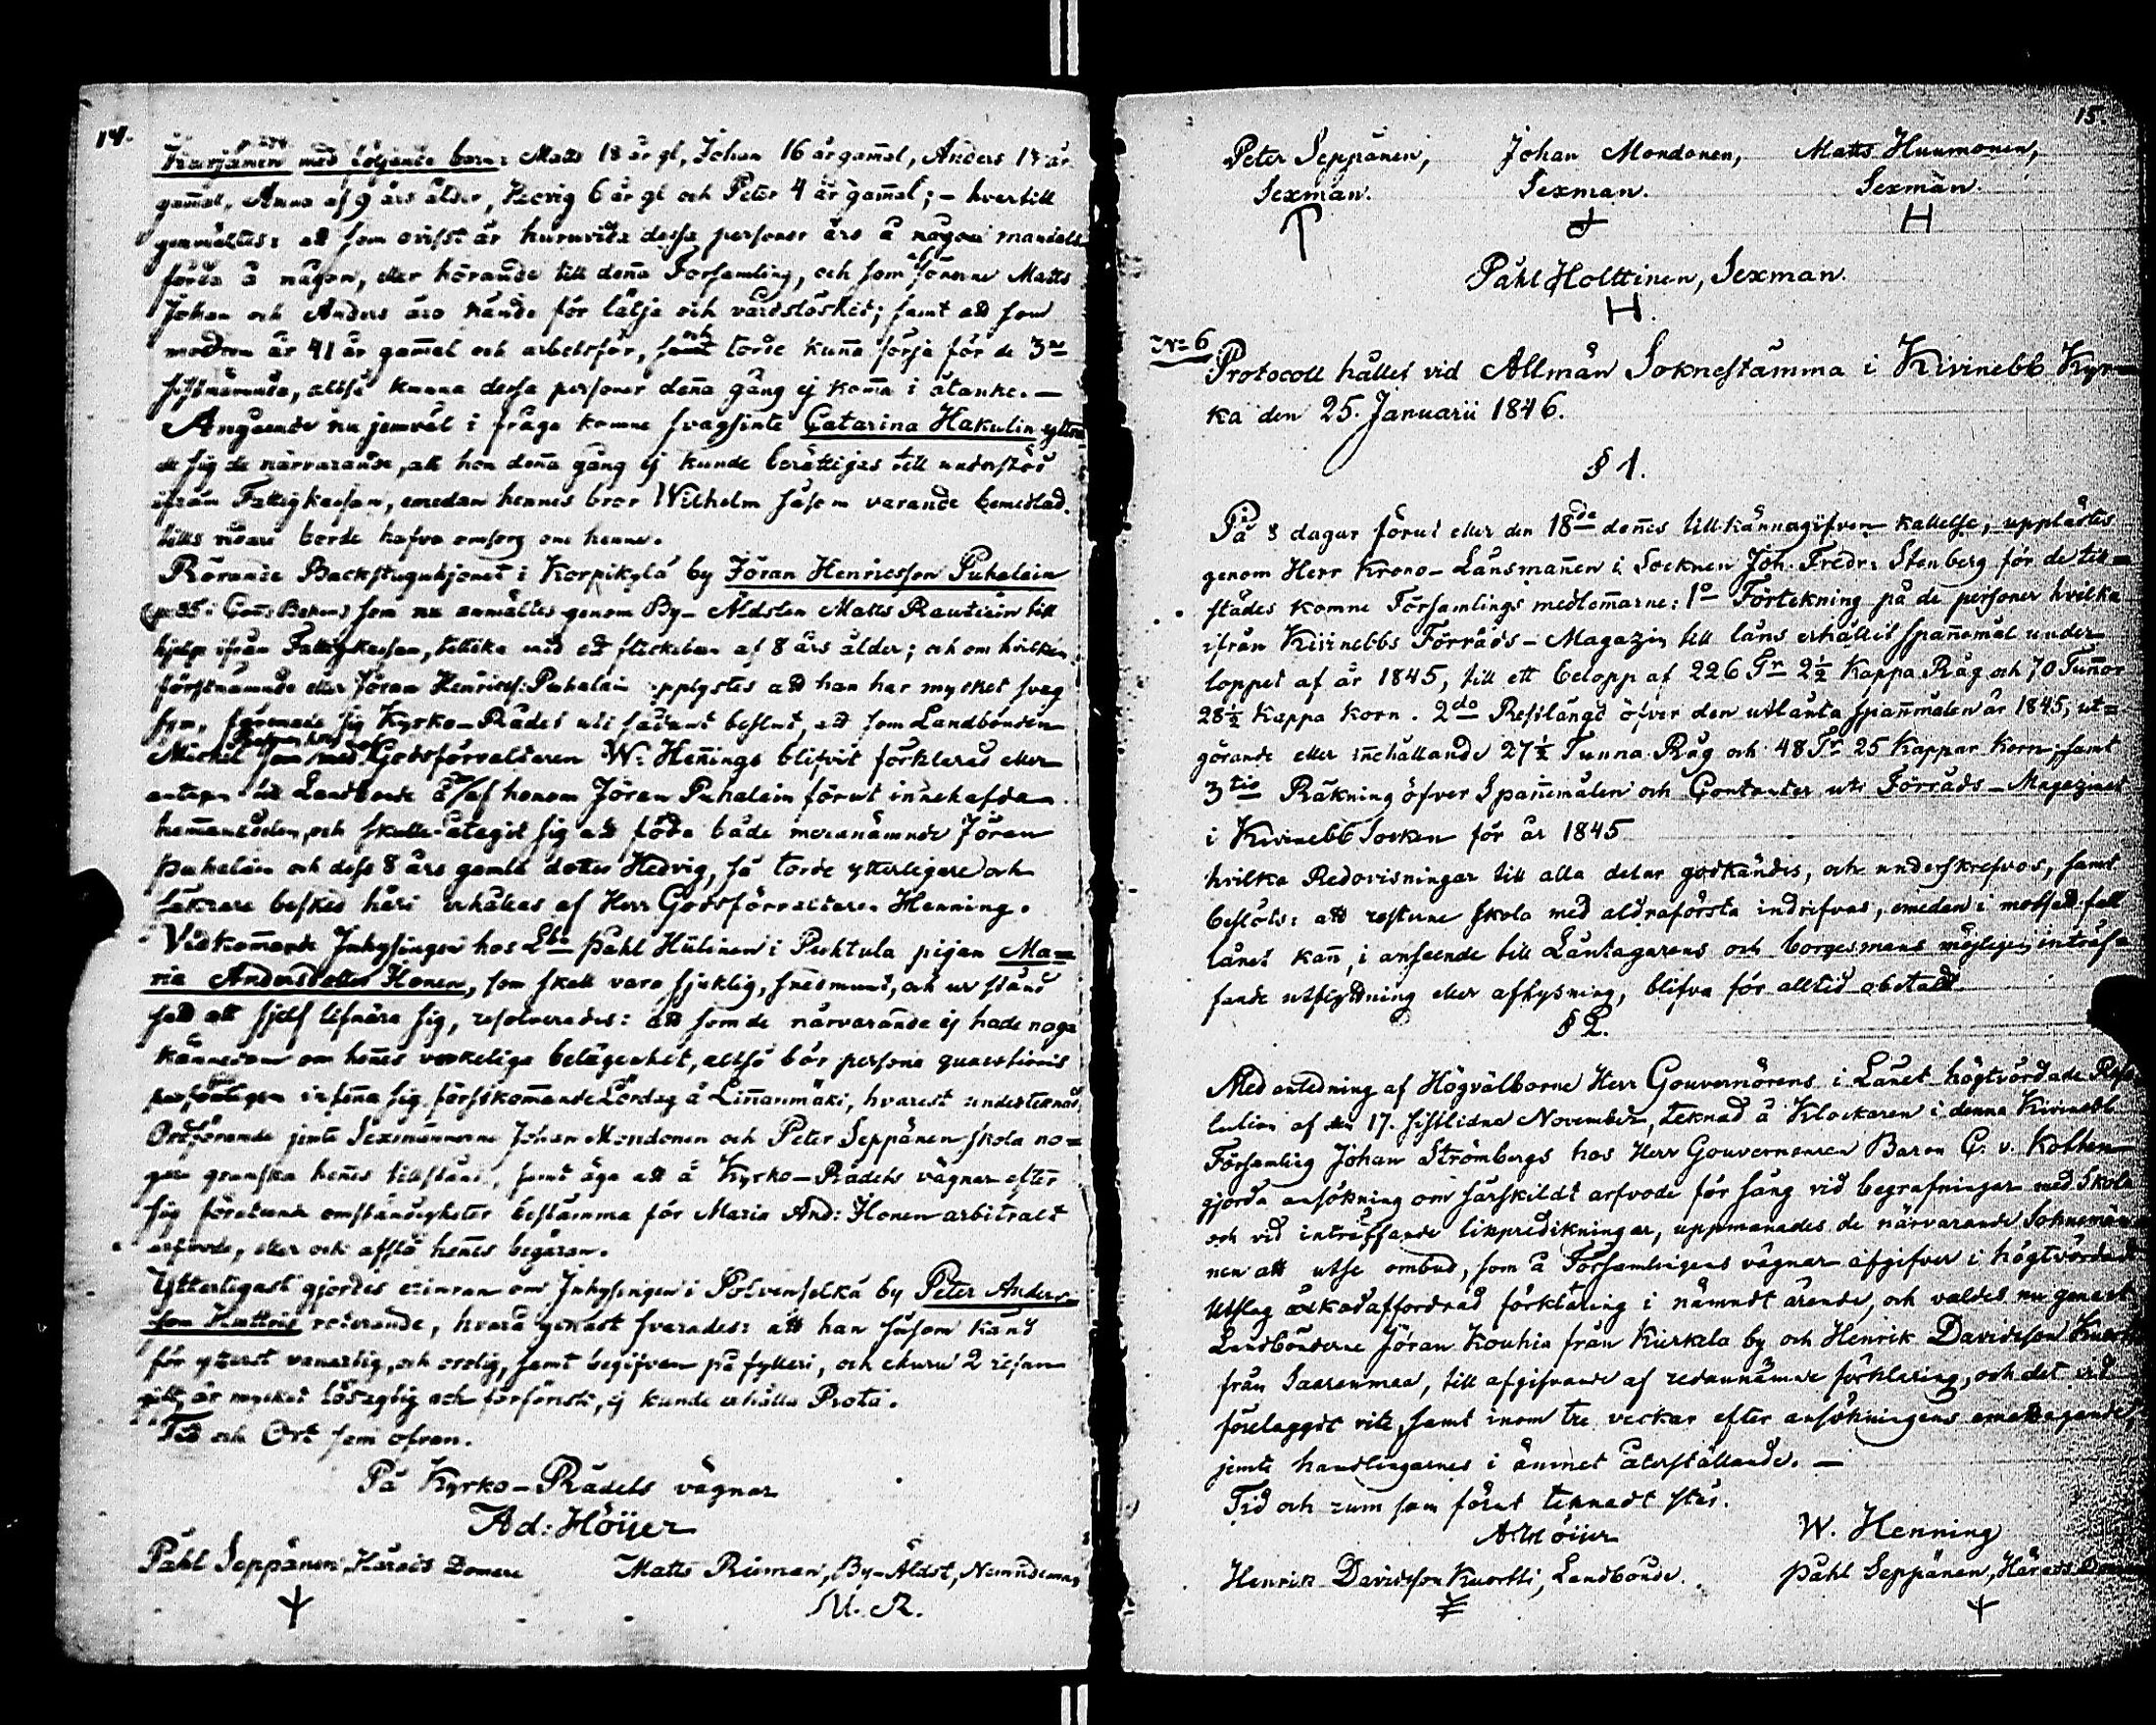 14.
Karjanen med följande barn: Matts 18 år gl, Johan 16 år gam̄al, Anders 13 år
gam̄al, Anna af 9 års ålder, Hedvig 6 år gl och Peter 4 år gam̄al; – hvartill
genmältes: att som ovisst är huruvida dessa personer äro å någon mantals
förda å någon, eller hörande till den̄a Församling, och som sönerne Matts
Johan och Anders äro kände för lätja och vårdslöshet; samt att som
modren är 41 år gam̄al och arbetsför, och torde kun̄a försörja för de 3ne
sistnämnde, altså kunna dessa personer den̄a gång ej kom̄a i åtanke. –
Angående nu jemväl i fråga komne svagsinte Catarina Hakulin yttra
de sig de närvarande, att hon den̄a gång ej kunde berättigas till understöd
ifrån Fattigkassan, emedan hennes bror Wilhelm såsom varande bemedlad
tills vidare borde hafva omsorg om henne.
Rörande Backstuguhjonet i Korpikylä by Jöran Henricsson Puhalain
som nu anmältes genom By-Äldsten Matts Rautiain till
hjelp ifrån Fattigkassan, tillika med ett flickebarn af 8 års ålder; och om hvilken
förstnämnde eller Jöran Henricss: Puhalain upplystes att han har mycket svag
syn, förenade sig Kyrko-Rådet uti sådant beslut, att som Landbonden
Mickel som med Godsförvaltaren W: Hennings blifvit förklarad eller
antagen till Landbonde å /af honom Jöran Puhalain förut innehafda
hemmansdelen, och skulle åtagit sig att föda både mernämnde Jöran
Puhalain och dess 8 års gamla dotter Hedvig, så torde ytterligare och
säkrare besked häri erhållas af Herr Godsförvaltaren Henning.
Vidkom̄ande Inhysingen hos Lb: Påhl Hülinen i Puhtula pigan Ma=
ria Andersdotter Honen, som skall vara sjuklig, snedmund, och ur stånd
satt att sjelf lifnära sig, resolverades: att som de närvarande ej hade noga
kännedom om hen̄es verkeliga belägenhet, altså bör persona quaestionis
personligen infin̄a sig förstkom̄ande Lördag å Lin̄anmäki, hvarest undertecknad
Ordförande jemte Sexmännerne Johan Mondonen och Peter Seppänen skola no=
ga granska hen̄es tillstånd, samt äga att å Kyrko-Rådets vägnar efter
sig företeende omständigheter bestämma för Maria And: Honen arbitralt
arfvode, eller och afslå hen̄es begäran.
Ytterligast gjordes erinran om Inhysingen i Polvenselkä by Peter Anders=
son Kuttris vederande, hvarå genast svarades: att han såsom känd
för ytterst vanartig, och oredig, samt begifven på fylleri, och ehuru 2 resor
gift, är mycket lösaktig och förförisk, ej kunde erhålla Rota.
Tid och Ort som ofvan.
På Kyrko-Rådets vägnar
Ad: Höijer
Påhl Seppänen, Härads Domare
Matts Riiman, By-Äldst, Nemndeman
M. R.
15.
Peter Seppänen, Johan Mondonen, Matts Huumonen,
Sexman. Sexman. Sexman.
H
Påhl Holttinen, Sexman.
H.
No 6
Protocoll hållet vid Allmän Soknestämma i Kivinebb Kyr=
ka den 25. Januarii 1846.
§ 1.
På 8 dagar förut eller den 18de den̄es tillkännagifven kallelse, upplästes
genom Herr Krono-Länsman̄en i Socknen Joh. Fredr: Stenberg för de till=
städes komne Församlings medlem̄arne: 1o Förtekning på de personer hvilka
ifrån Kivinebbs Förråds-Magazin till låns erhållit span̄emål under
loppet af år 1845, till ett belopp af 226 Tr 2½ Kappa Råg och 70 Tun̄or
28½ Kappa Korn. 2do Restlängd öfver den utlånta span̄målen år 1845, ut=
görande eller in̄ehållande 27½ Tunna Råg och 48 Tr 25 Kappar Korn; samt
3tio Räkning öfver Span̄emålen och Contanter uti Förråds-Magazinet
i Kivinebb Socken för år 1845
hvilka Redovisningar till alla delar godkändes, och underskrefvos, samt
beslöts: att resterne skola med aldraförsta indrifvas, emedan i motsatt fall
lånet kan̄, i anseende till Låntagarens och borgesmans möjligen inträf=
fande utflyttning eller afhysning, blifva för alltid obetaldt.
§ 2.
Med anledning af Högvälborne Herr Gouvernörens i Länet högtvördade Reso
lution af den 17. sistlidne November, teknad å Klockaren i denna Kivinebb
Församling Johan Strömbergs hos Herr Gouverneuren Baron C. v. Kothen
gjorda ansökning om särskildt arfvode för sång vid begrafningar med Skola
och vid inträffande likpredikningar, uppmanades de närvarande Soknemän
nen att utse ombud, som å Församlingens vägnar afgifver i högtvördade
Utslag äskad affordrad förklaring i nämndt ärende, och valdes nu genast
Landbönderne Jöran Kouhia från Kurkela by och Henrik Davidsson Kuortti
från Saarenmaa, till afgifvande af redannämnde förklaring, och det vid
förelaggdt vite, samt inom tre veckor efter ansökningens emottagande,
jemte handlingarnes i ämnet återställande. –
Tid och rum som förut teknadt står.
Ad Höijer W. Henning
Henrik Davidsson Kuortti, Landbonde. Påhl Seppänen, Härads Dom